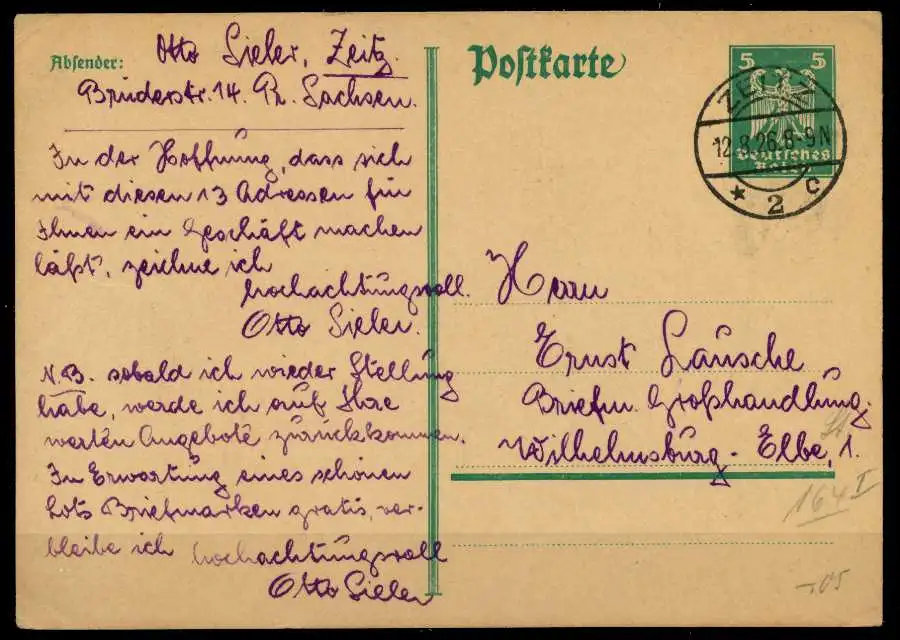 Absender: Otto Sieler, Zeitz.
Brüderstr. 14. Pr. Sachsen.
In der Hoffnung, dass sich
mit diesen 13 Adressen für
Ihnen ein Geschäft machen
läßt, zeichne ich
hochachtungsvoll.
Otto Sieler.
N.B. sobald ich wieder Stellung
habe, werde ich auf Ihre
werten Angebote zurückkommen.
In Erwartung eines schönen
Lots Briefmarken gratis, ver-
bleibe ich hochachtungsvoll
Otto Sieler
Postkarte
5 5
Deutsches
Reich
ZEITZ
12.8.26.8-9N
* 2 c
Herrn
Ernst Läusche
Briefm. Großhandlung.
Wilhelmsburg - Elbe, 1.
164 I
-,05